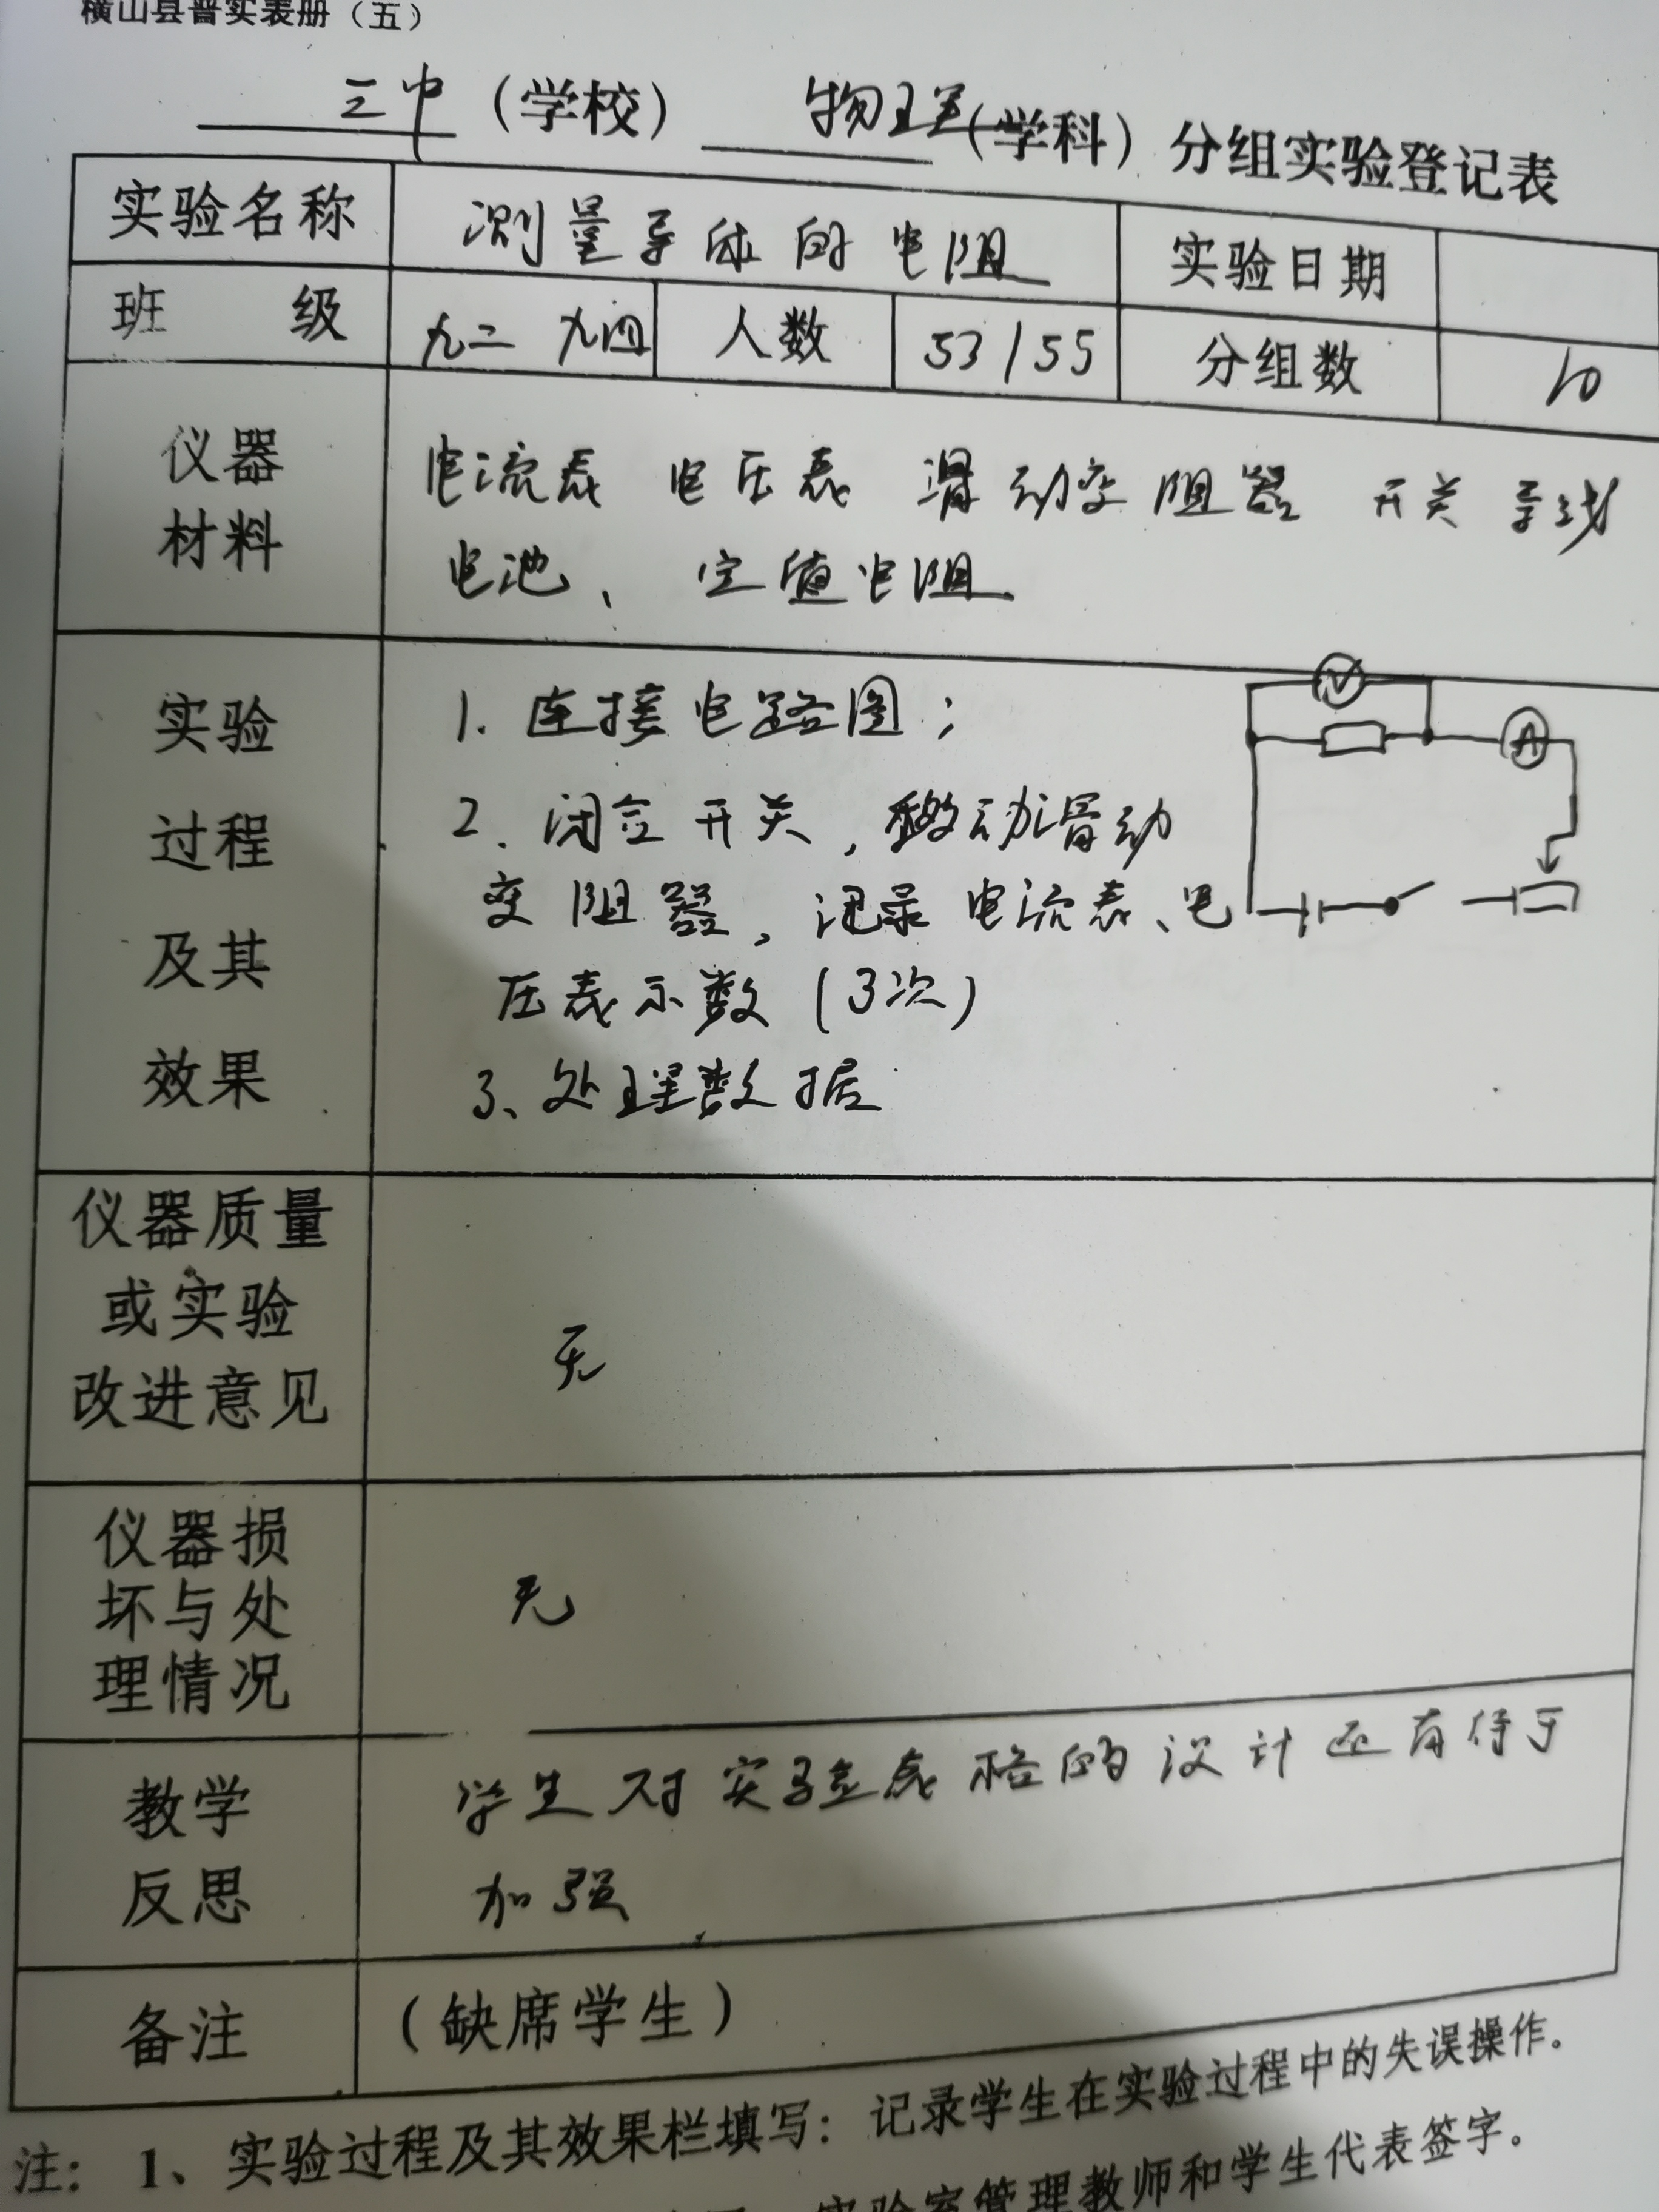 横山县普实表册（五）
三中（学校） 物理（学科）分组实验登记表
实验名称 测量导体的电阻 实验日期
班 级 九二 九四 人数 53/55 分组数 10
仪器
材料
电流表 电压表 滑动变阻器 开关 导线
电池、定值电阻.
实验
过程
及其
效果
1. 连接电路图；
V
A
2. 闭合开关，移动滑动
变阻器，记录电流表、电
压表示数（3次）
3、处理数据
仪器质量
或实验
改进意见
无
仪器损
坏与处
理情况
无
教学
反思
学生对实验表格的设计还有待于
加强
备注
（缺席学生）
注： 1、实验过程及其效果栏填写：记录学生在实验过程中的失误操作。
实验室管理教师和学生代表签字。